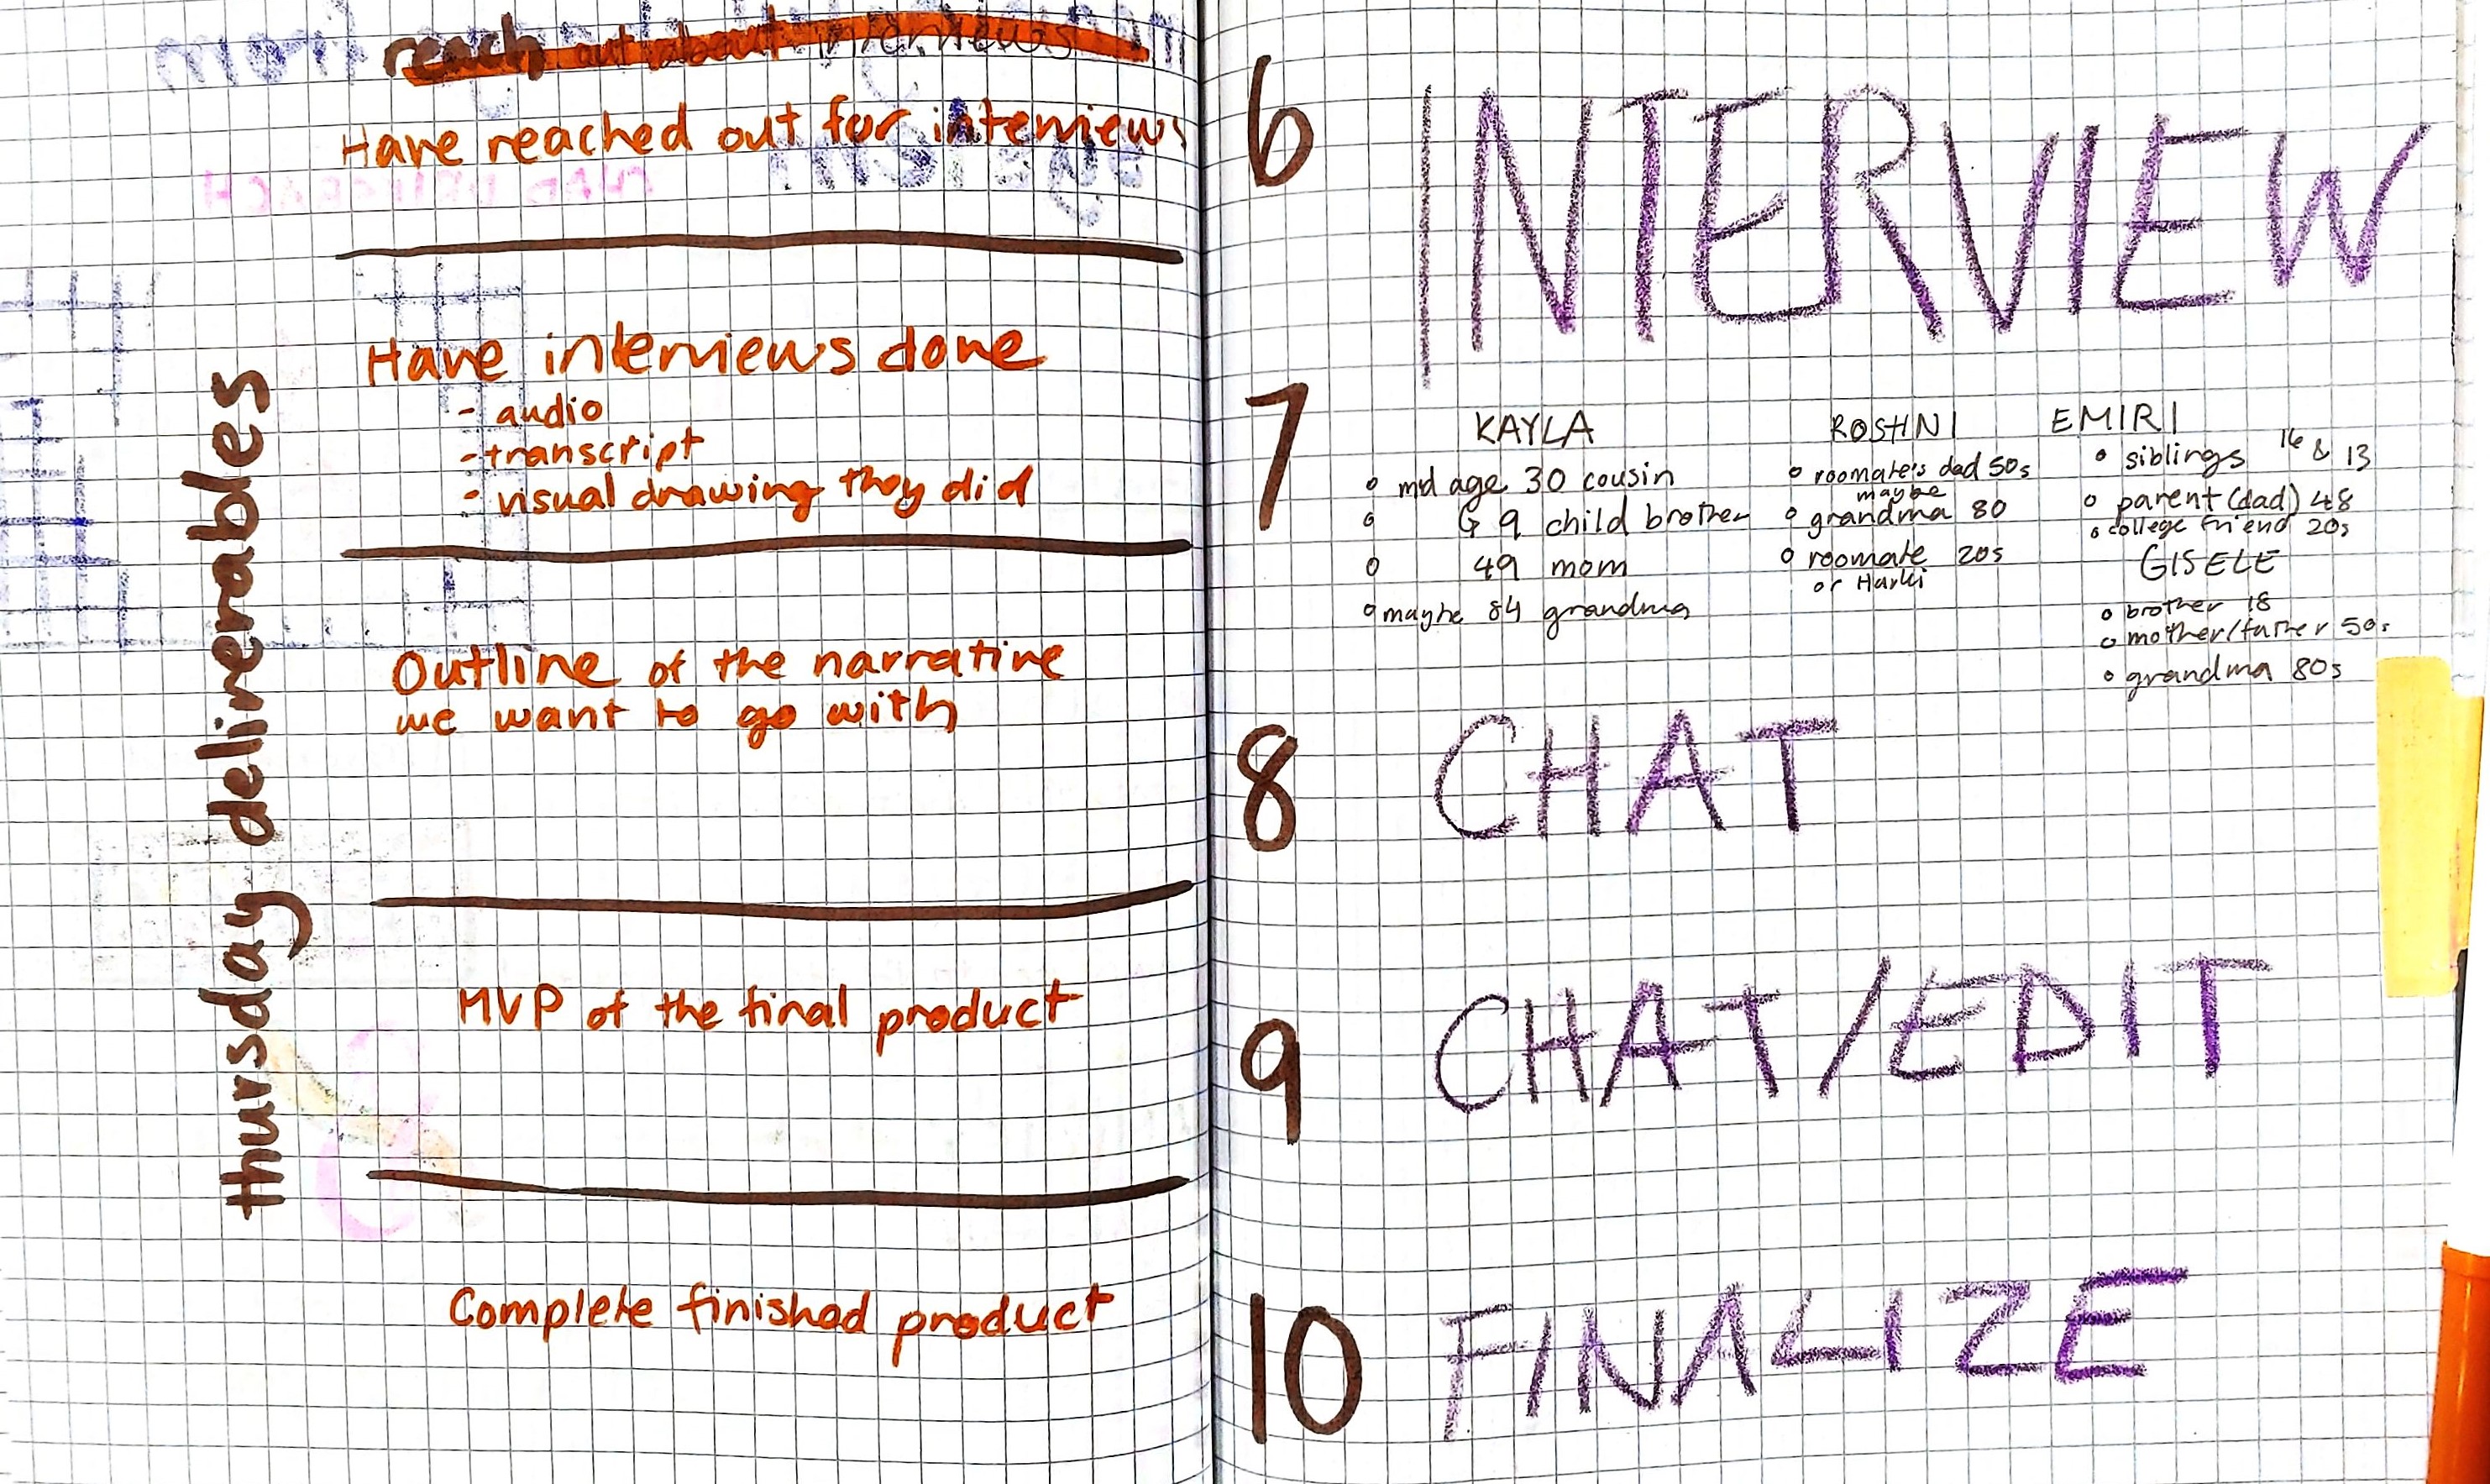 reach out about interviews
Have reached out for interviews
Have interviews done
- audio
- transcript
- visual drawing they did
Outline of the narrative
we want to go with
MVP of the final product
Complete finished product
thursday deliverables
6
INTERVIEW
7
KAYLA
mid age 30 cousin
9 child brother
49 mom
maybe 84 grandma
ROSHNI
roomate's dad 50s
maybe
grandma 80
roomate 20s
or
EMIRI
siblings 16 & 13
parent (dad) 48
college friend 20s
GISELE
brother 18
mother/father 50s
grandma 80s
8
CHAT
9
CHAT/EDIT
10
FINALIZE